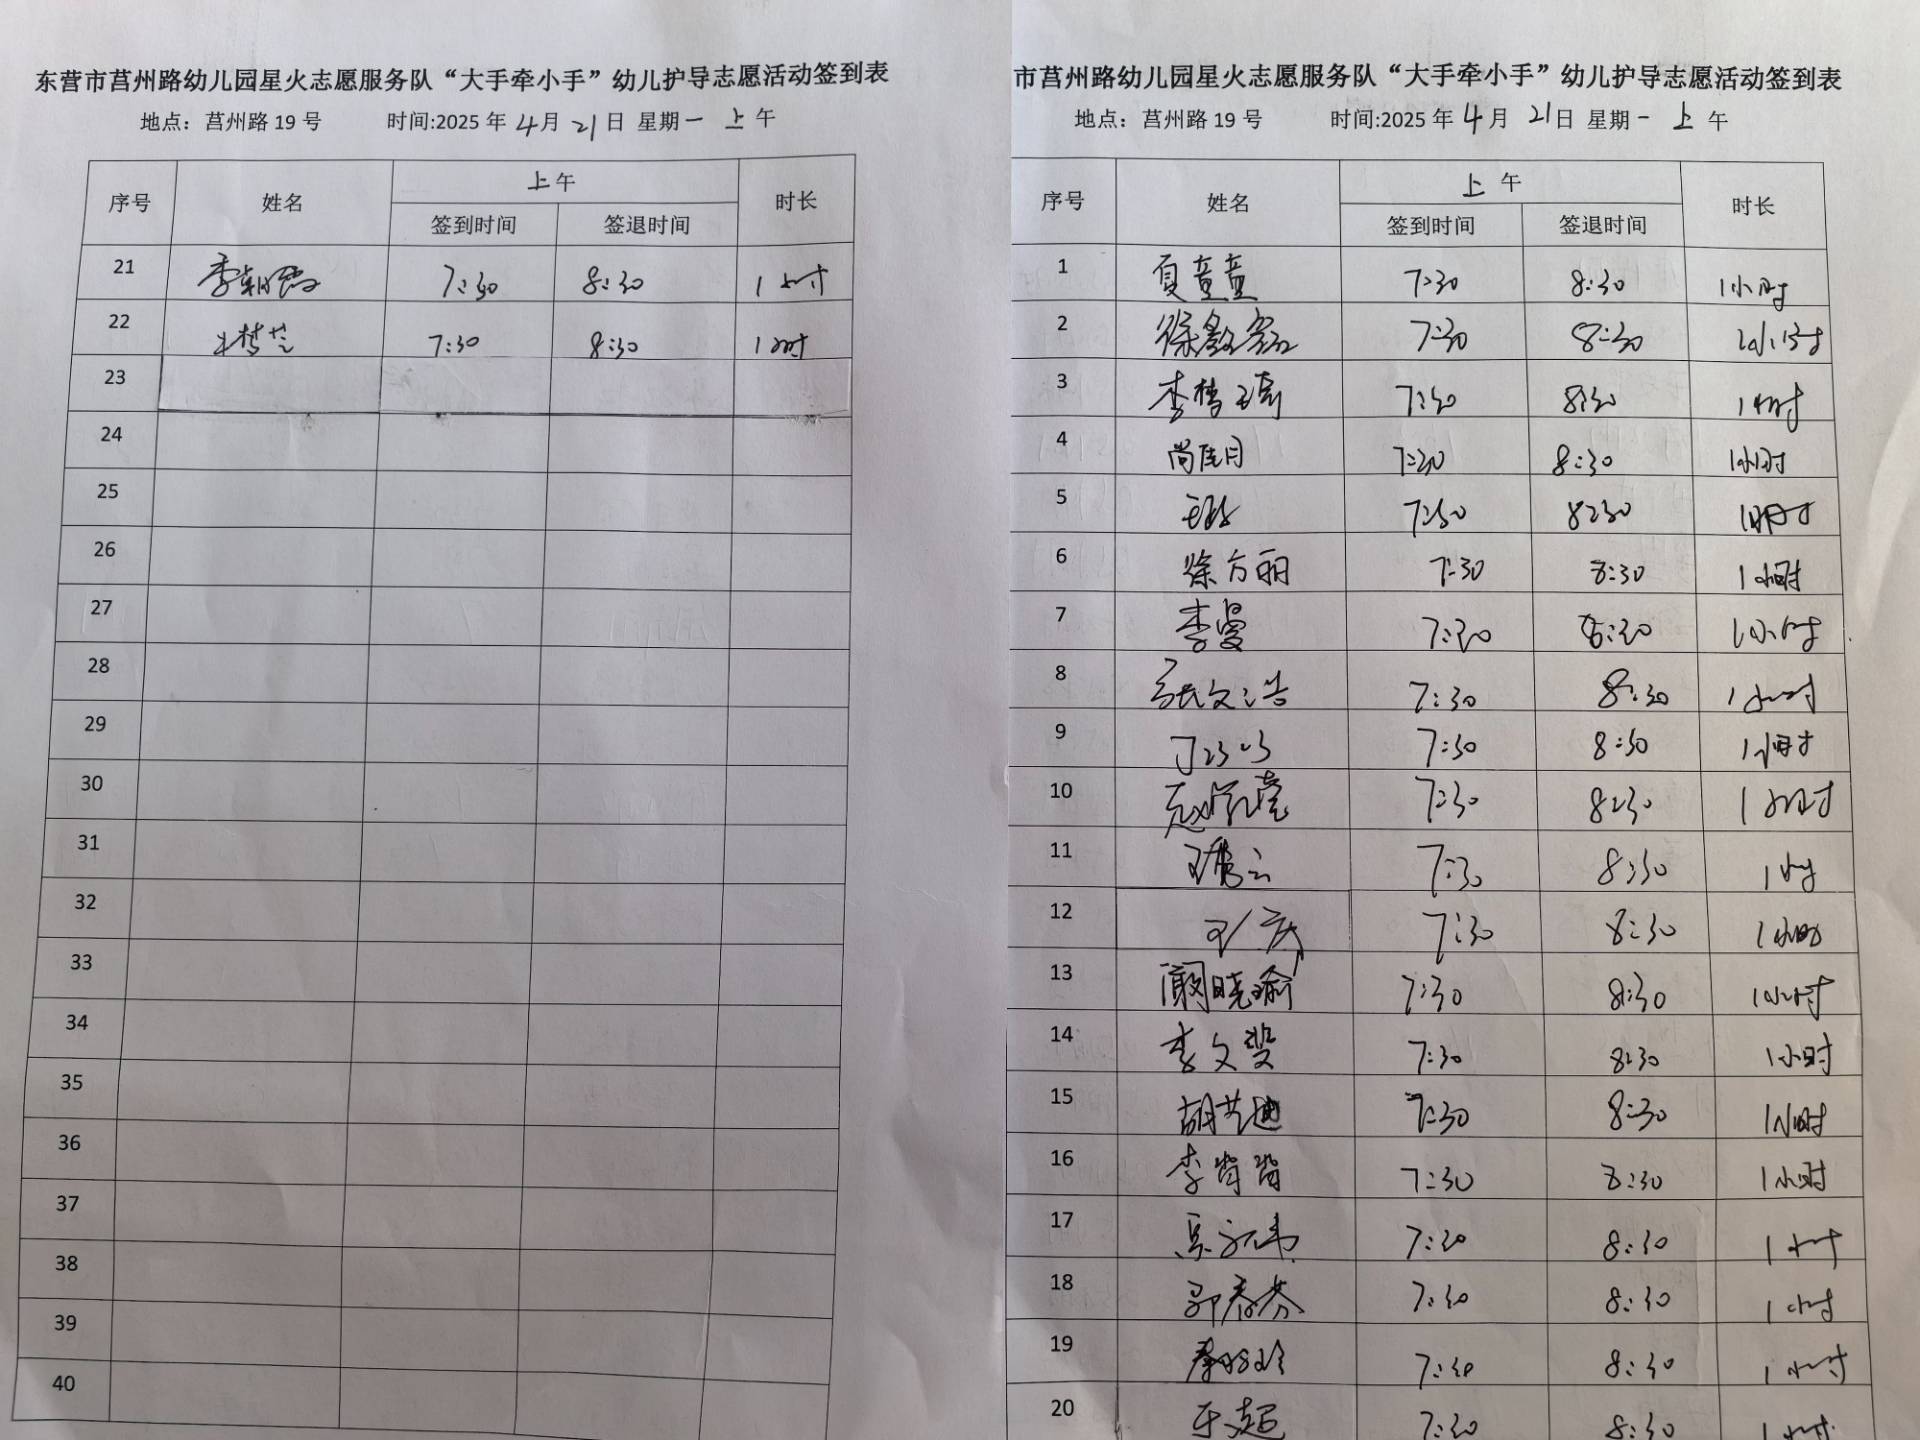 东营市莒州路幼儿园星火志愿服务队“大手牵小手”幼儿护导志愿活动签到表
地点：莒州路 19 号 时间:2025 年 4月 21日 星期一 上午
序号 姓名 上午 时长
签到时间 签退时间
21 7:30 8:30 1小时
22 7:30 8:30 1小时
23
24
25
26
27
28
29
30
31
32
33
34
35
36
37
38
39
40
市莒州路幼儿园星火志愿服务队“大手牵小手”幼儿护导志愿活动签到表
地点：莒州路 19 号 时间:2025 年 4月 21日 星期一 上午
序号 姓名 上午 时长
签到时间 签退时间
1 夏童童 7:30 8:30 1小时
2 徐 7:30 8:30 1小时
3 李梦琦 7:30 8:30 1小时
4 尚佳月 7:30 8:30 1小时
5 7:30 8:30 1小时
6 徐方丽 7:30 8:30 1小时
7 李曼 7:30 8:30 1小时
8 张文浩 7:30 8:30 1小时
9 7:30 8:30 1小时
10 7:30 8:30 1小时
11 7:30 8:30 1小时
12 7:30 8:30 1小时
13 阚晓瑜 7:30 8:30 1小时
14 李文雯 7:30 8:30 1小时
15 胡艺迪 7:30 8:30 1小时
16 李肖肖 7:30 8:30 1小时
17 7:30 8:30 1小时
18 郭春芬 7:30 8:30 1小时
19 秦 7:30 8:30 1小时
20 7:30 8:30 1小时